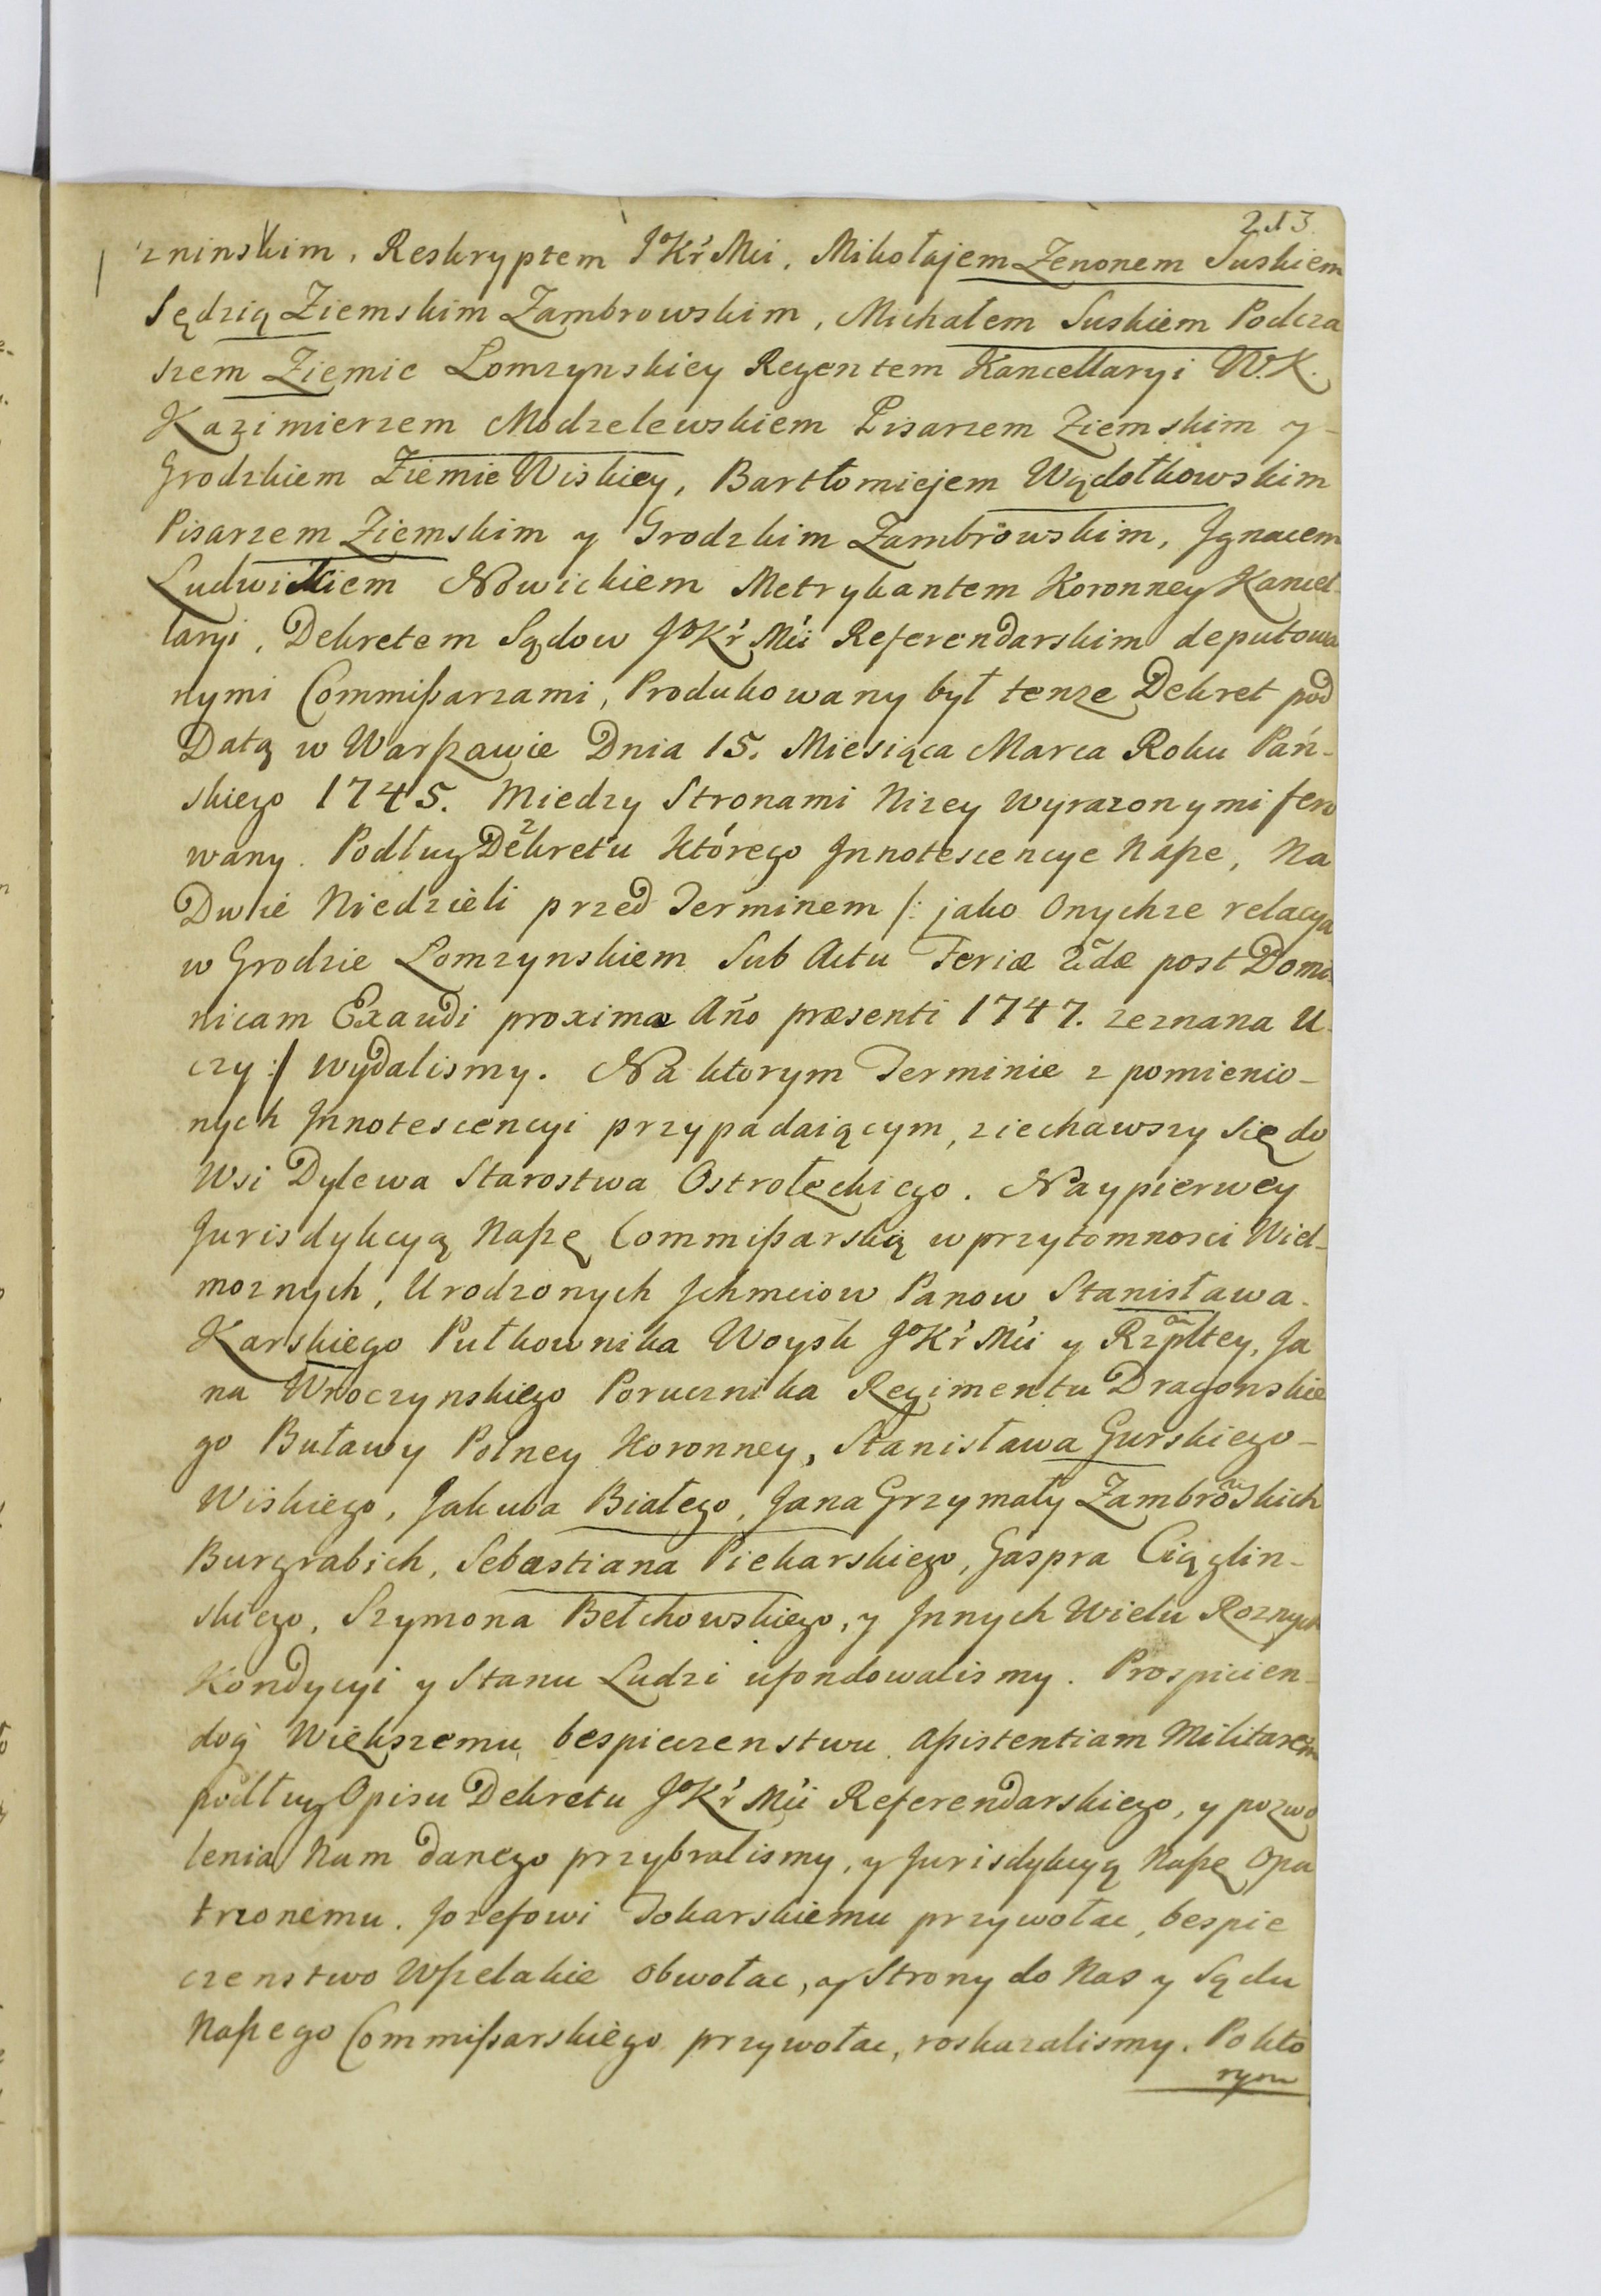 213
zninskim, Reskryptem JoKr Mci, Mikołajem Zenonem Suskiem
Sędzią Ziemskim Zambrowskim, Michałem Suskiem Podcza
szem Ziemie Lomzynskiey Regentem Kancellaryi W.K.
Kazimierzem Modzelewskiem Pisarzem Ziemskim y
Grodzkiem Ziemie Wiskiey, Bartłomiejem Wądołkowskim
Pisarzem Ziemskim y Grodzkim Zambrowskim, Jgnacem
Ludwikiem Nowickiem Metrykantem Koronney Kancel-
laryi, Dekretem Sądow JoKr Mci Referendarskim deputowa
nymi Commißarzami, Produkowany był tenze Dekret pod
Datą w Warßawie Dnia 15. Miesiąca Marca Roku Pań-
skiego 1745. Miedzy Stronami Nizey wyrazonymi fero
wany. Podług Dekretu którego Jnnotescencye Naße, Na
Dwie Niedzieli przed Terminem /: jako Onychze relacya
w Grodzie Lomzynskiem Sub Actu Feriæ 2dæ post Domi-
nicam Exaudi proxima Año præsenti 1747. zeznana U-
czy :/ wydalismy. Na ktorym Terminie z pomienio-
nych Jnnotescencyi przypadaiącym, ziechawszy się do
Wsi Dylewa Starostwa Ostrołęckiego. Naypierwey
Jurisdykcyą Naßę Commißarską w przytomnosci Wiel-
moznych, Urodzonych Jchmciow Panow Stanisława
Karskiego Pułkownika Woysk JoKr Mci y Rzpltey, Ja
na Wroczynskiego Porucznika Regimentu Dragonskie
go Buławy Polney Koronney, Stanisława Gurskiego-
Wiskiego, Jakuba Białego, Jana Grzymały Zambrowskich
Burgrabich, Sebastiana Piekarskiego, Gaspra Ciąglin-
skiego, Szymona Bełchowskiego, y Jnnych Wielu Roznych
Kondycyi y Stanu Ludzi ufondowalismy. Prospicien-
doq Większemu bespieczenstwu aßistentiam Militarem
podług Opisu Dekretu JoKr Mci Referendarskiego, y pozwo
lenia Nam danego przybralismy, y Jurisdykcyą Naßę Opa
trzonemu. Jozefowi Tokarskiemu przywołac, bespie
czenstwo Wßelakie obwołac, y Strony do Nas y Sądu
Naßego Commißarskiego przywołac, roskazalismy. Po kto
rym